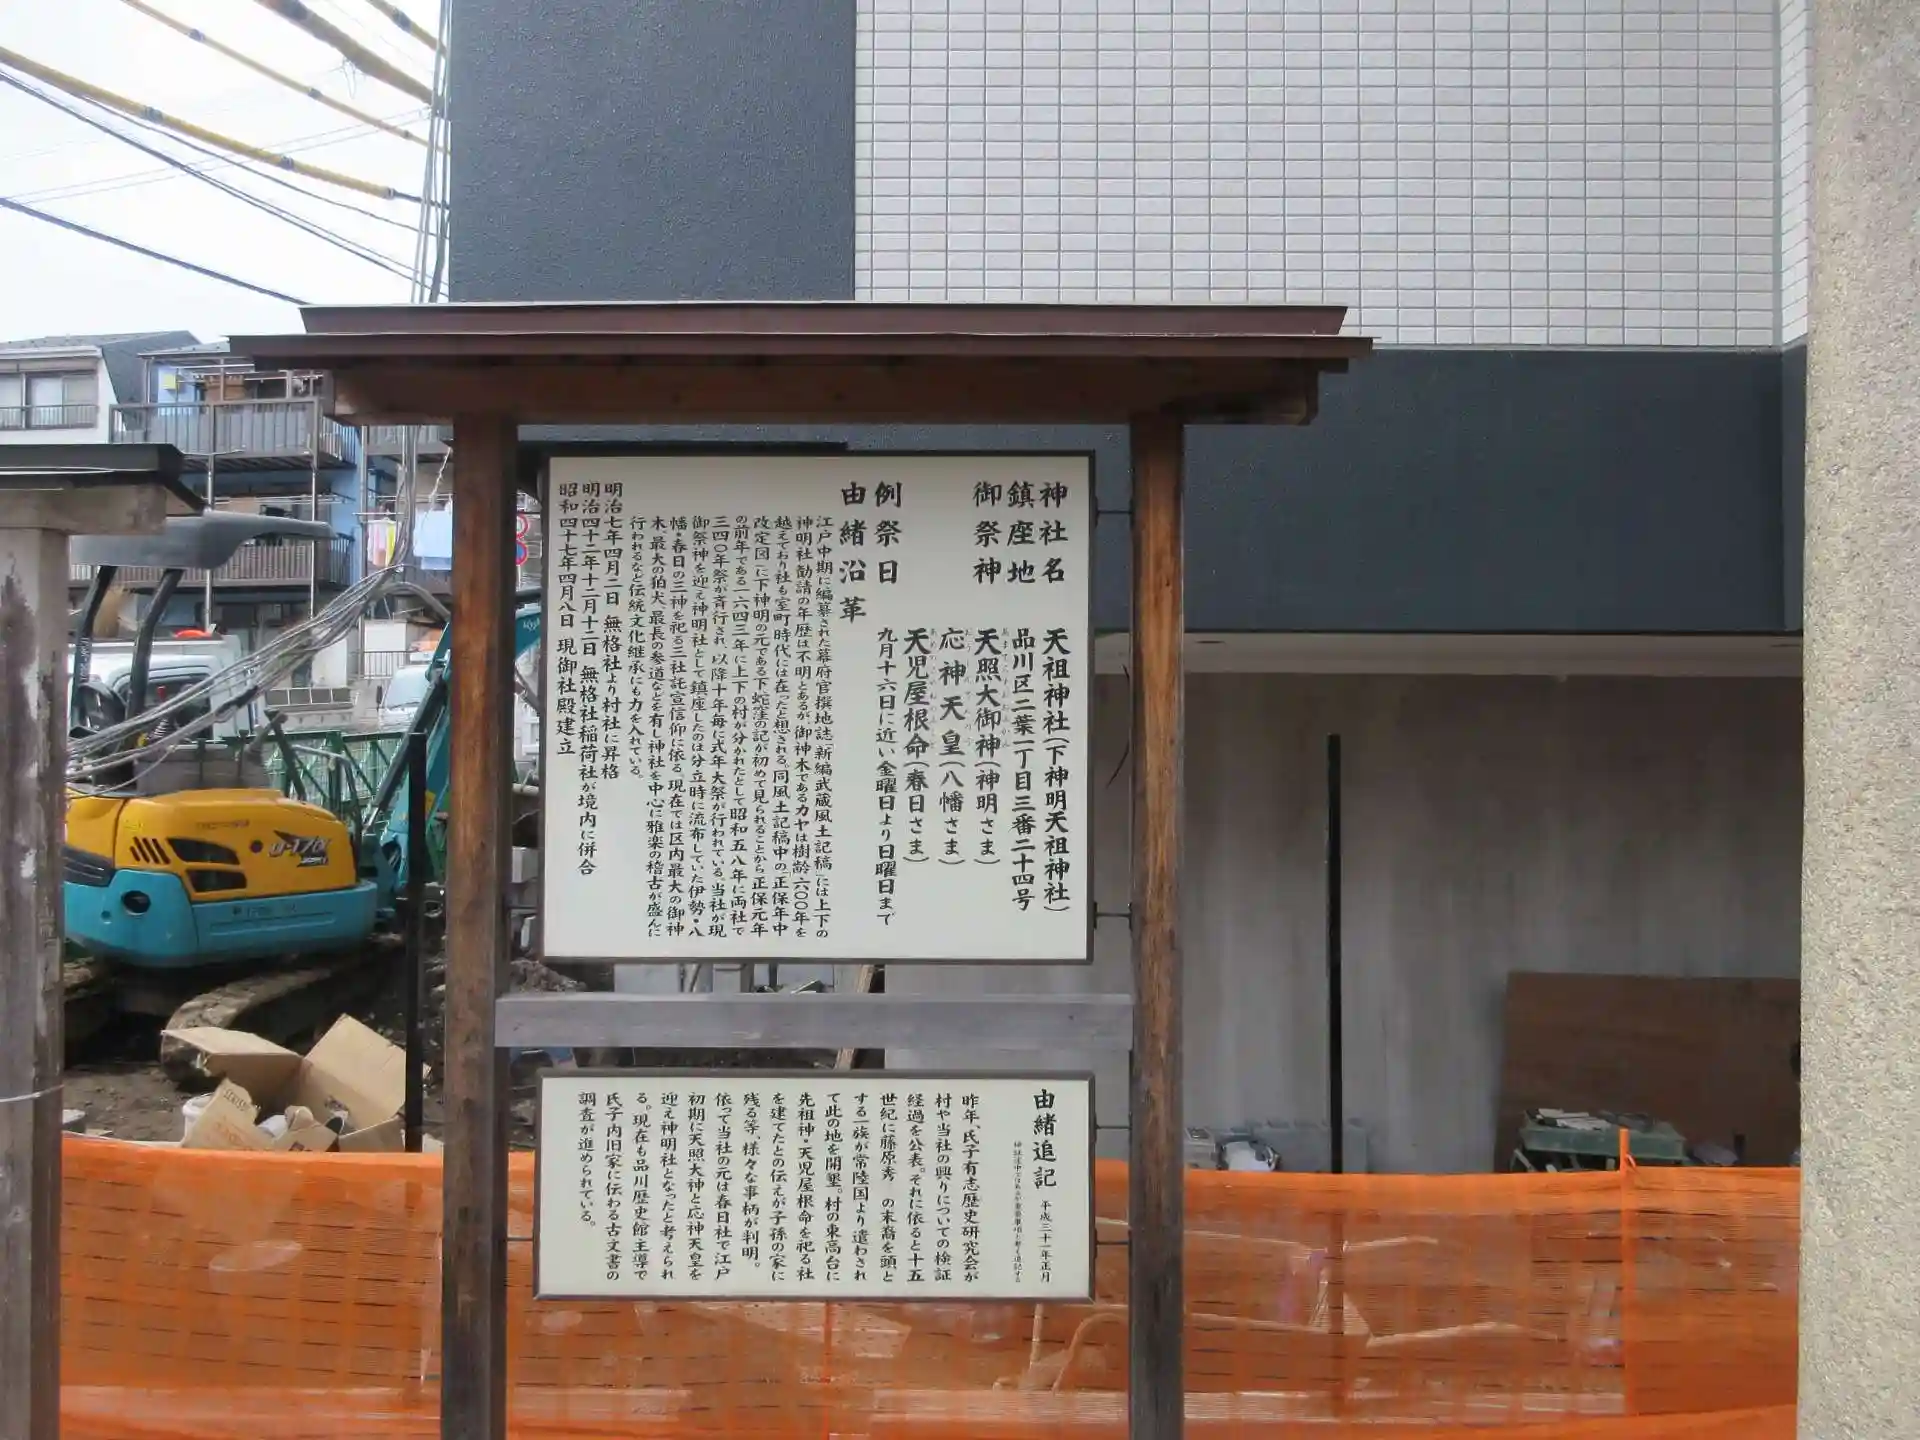 神社名 天祖神社(下神明天祖神社)
鎮座地 品川区二葉一丁目三番二十四号
御祭神 天照大御神(神明さま)
応神天皇(八幡さま)
天児屋根命(春日さま)
例祭日 九月十六日に近い金曜日より日曜日まで
由緒沿革
江戸中期に編纂された幕府官撰地誌「新編武蔵風土記稿」には上下の
神明社勧請の年歴は不明とあるが、御神木であるカヤは樹齢六〇〇年を
越えており社も室町時代には在ったと想される。同風土記稿中の「正保年中
改定図」に下神明の元である下蛇窪の記が初めて見られることから正保元年
の前年である一六四三年に上下の村が分かれたとして昭和五八年に両社で
三四〇年祭が斉行され、以降十年毎に式年大祭が行われている。当社が現
御祭神を迎え神明社として鎮座したのは分立時に流布していた伊勢・八
幡・春日の三神を祀る三社託宣信仰に依る。現在では区内最大の御神
木、最大の狛犬、最長の参道などを有し神社を中心に雅楽の稽古が盛んに
行われるなど伝統文化継承にも力を入れている。
明治七年四月二日 無格社より村社に昇格
明治四十二年十二月十二日 無格社稲荷社が境内に併合
昭和四十七年四月八日 現御社殿建立
由緒追記 平成三十一年正月
昨年、氏子有志歴史研究会が
村や当社の興りについての検証
経過を公表。それに依ると十五
世紀に藤原秀 の末裔を頭と
する一族が常陸国より遣わされ
て此の地を開墾。村の東高台に
先祖神・天児屋根命を祀る社
を建てたとの伝えが子孫の家に
残る等、様々な事柄が判明。
依って当社の元は春日社で江戸
初期に天照大神と応神天皇を
迎え神明社となったと考えられ
る。現在も品川歴史館主導で
氏子内旧家に伝わる古文書の
調査が進められている。
U-17α